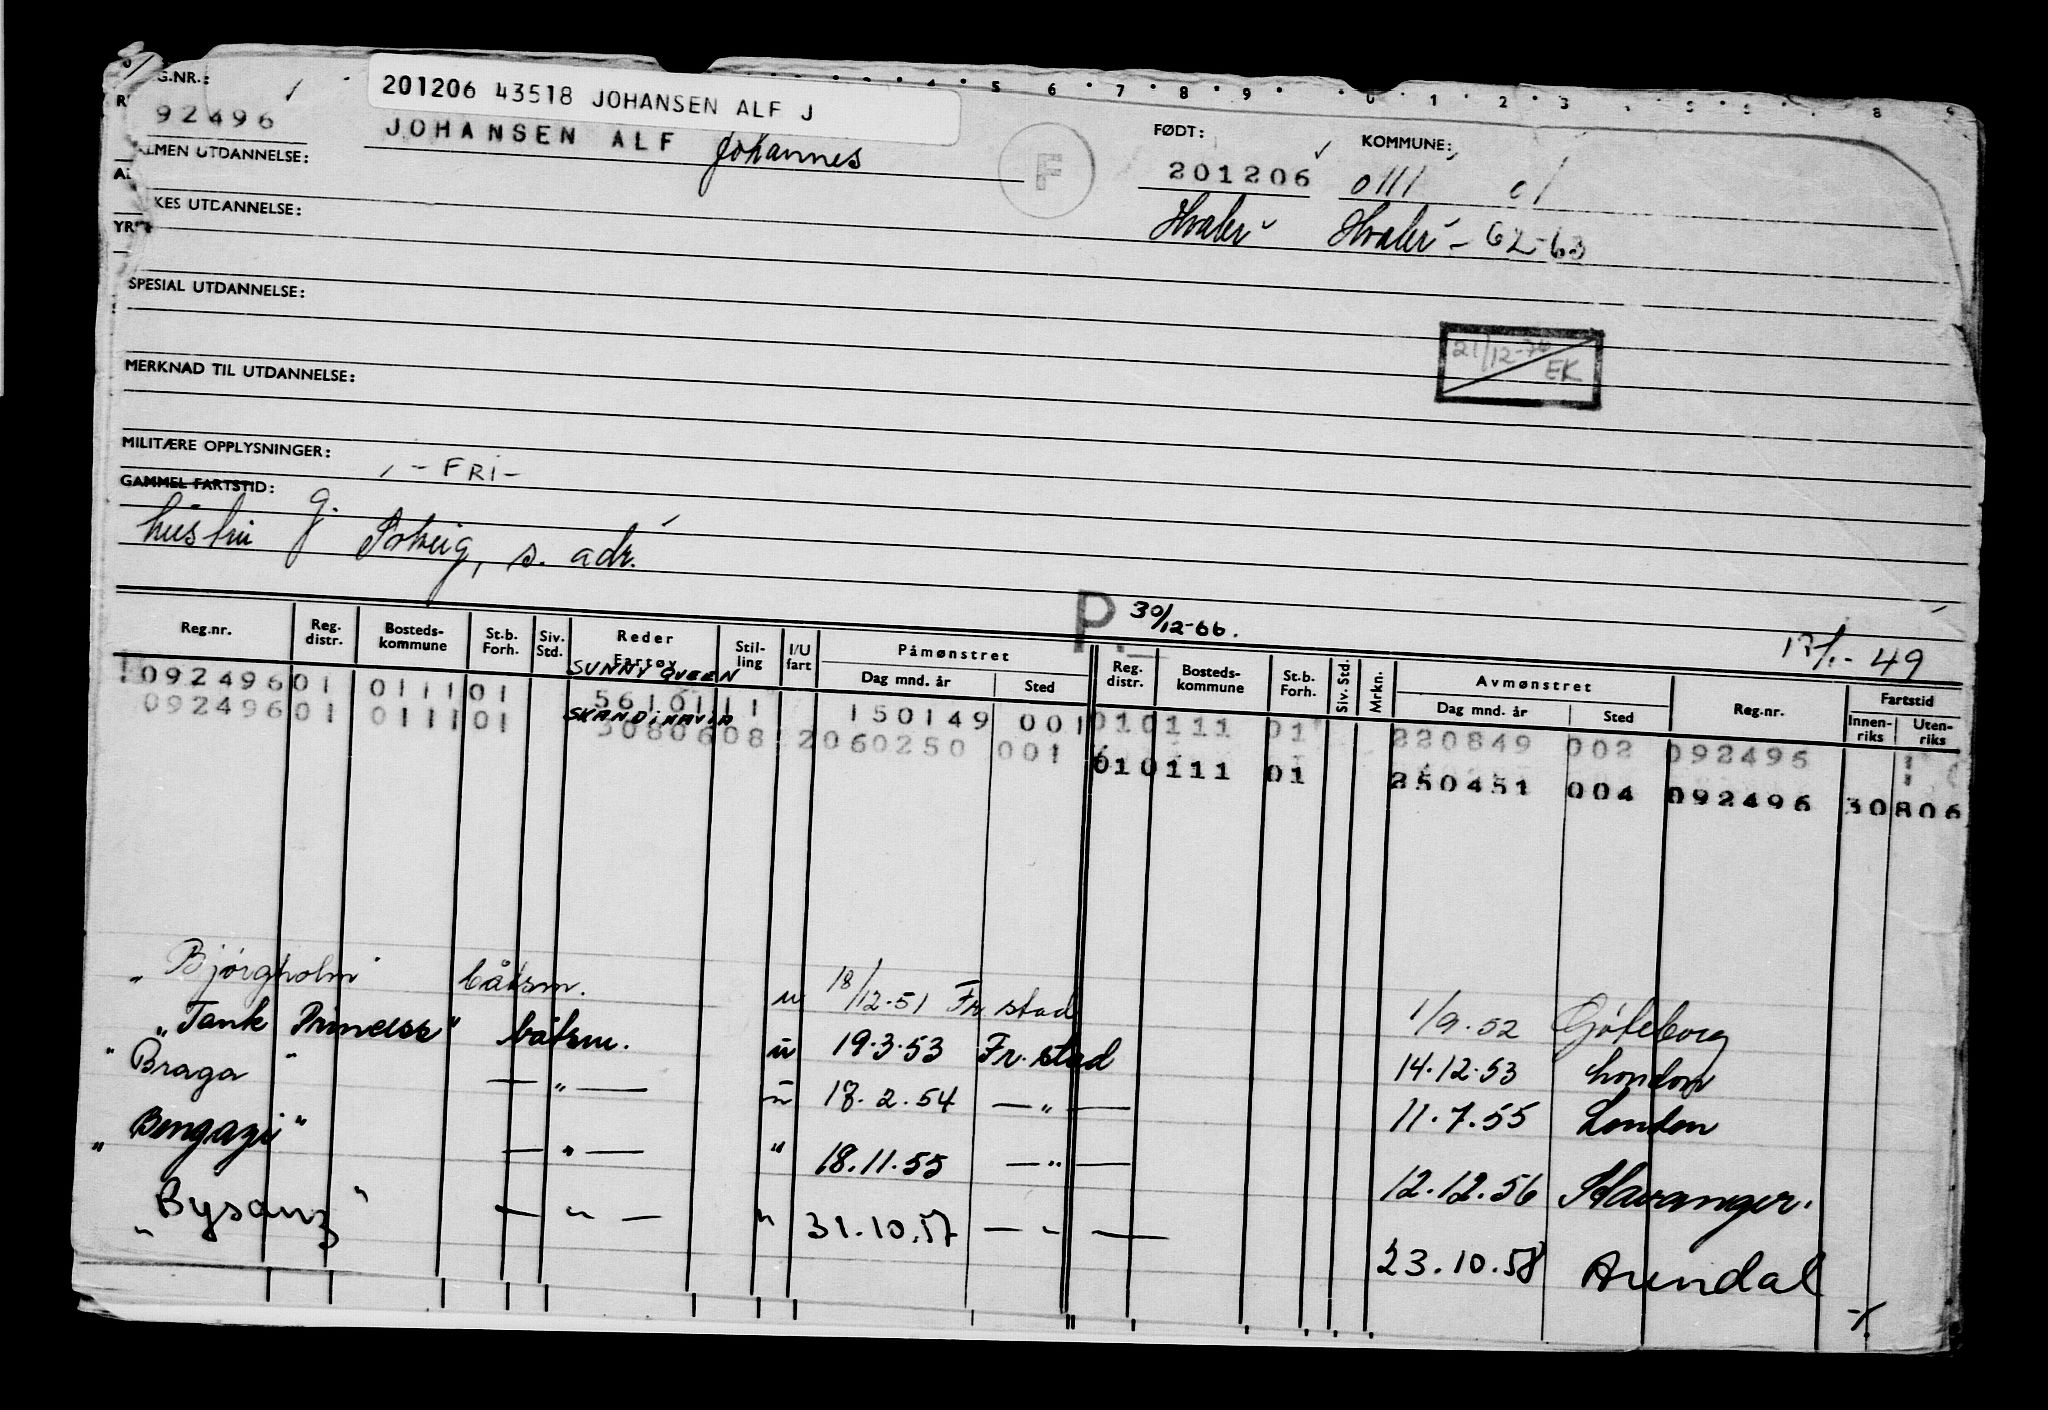 G.NR.:
92496
201206 43518 JOHANSEN ALF J
JOHANSEN ALF Johannes
F
FØDT:
201206
KOMMUNE:
0111 01
Hvaler Hvaler - 62-63
LMEN UTDANNELSE:
KES UTDANNELSE:
SPESIAL UTDANNELSE:
21/12-76 EK
MERKNAD TIL UTDANNELSE:
MILITÆRE OPPLYSNINGER: - FRI -
GAMMEL FARTSTID:
hustru g. Solveig, s. adr.
P. 30/12-66.
49
Reg.nr. Reg. distr. Bosteds-kommune St.b. Forh. Siv. Std. Reder Fartøy Stil-ling I/U fart Påmønstret Dag mnd. år Sted Reg. distr. Bosteds-kommune St.b. Forh. Siv. Std. Mrkn. Avmønstret Dag mnd. år Sted Reg.nr. Fartstid Innen-riks Uten-riks
SUNNY QUEEN
092496 01 0111 01 5616111 150149 001 010111 01 220849 002 092496
SKANDINAVIA
092496 01 0111 01 3080608 2 060250 001 010111 01 250451 004 092496 30806
"Bjørgholm" båtsm. u 18/12.51 Fr.stad 1/9.52 Göteborg
"Tank Princess" båtsm. u 19.3.53 Fr.stad 14.12.53 London
"Braga" — " — u 18.2.54 — " — 11.7.55 London
"Bengazi" — " — " 18.11.55 — " — 12.12.56 Stavanger.
"Bysanz" — " — " 31.10.57 — " — 23.10.58 Arendal